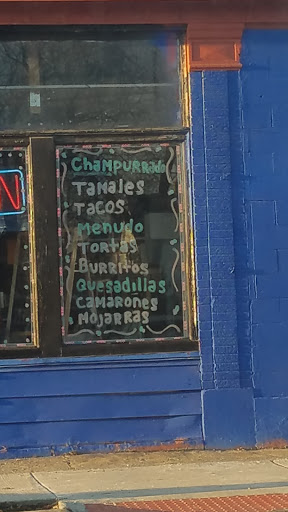 Champurrado
TAMALES
TACOS
menudo
TORTAS
BURRITOS
Quesadillas
CAMARONES
MOJARRAS
N